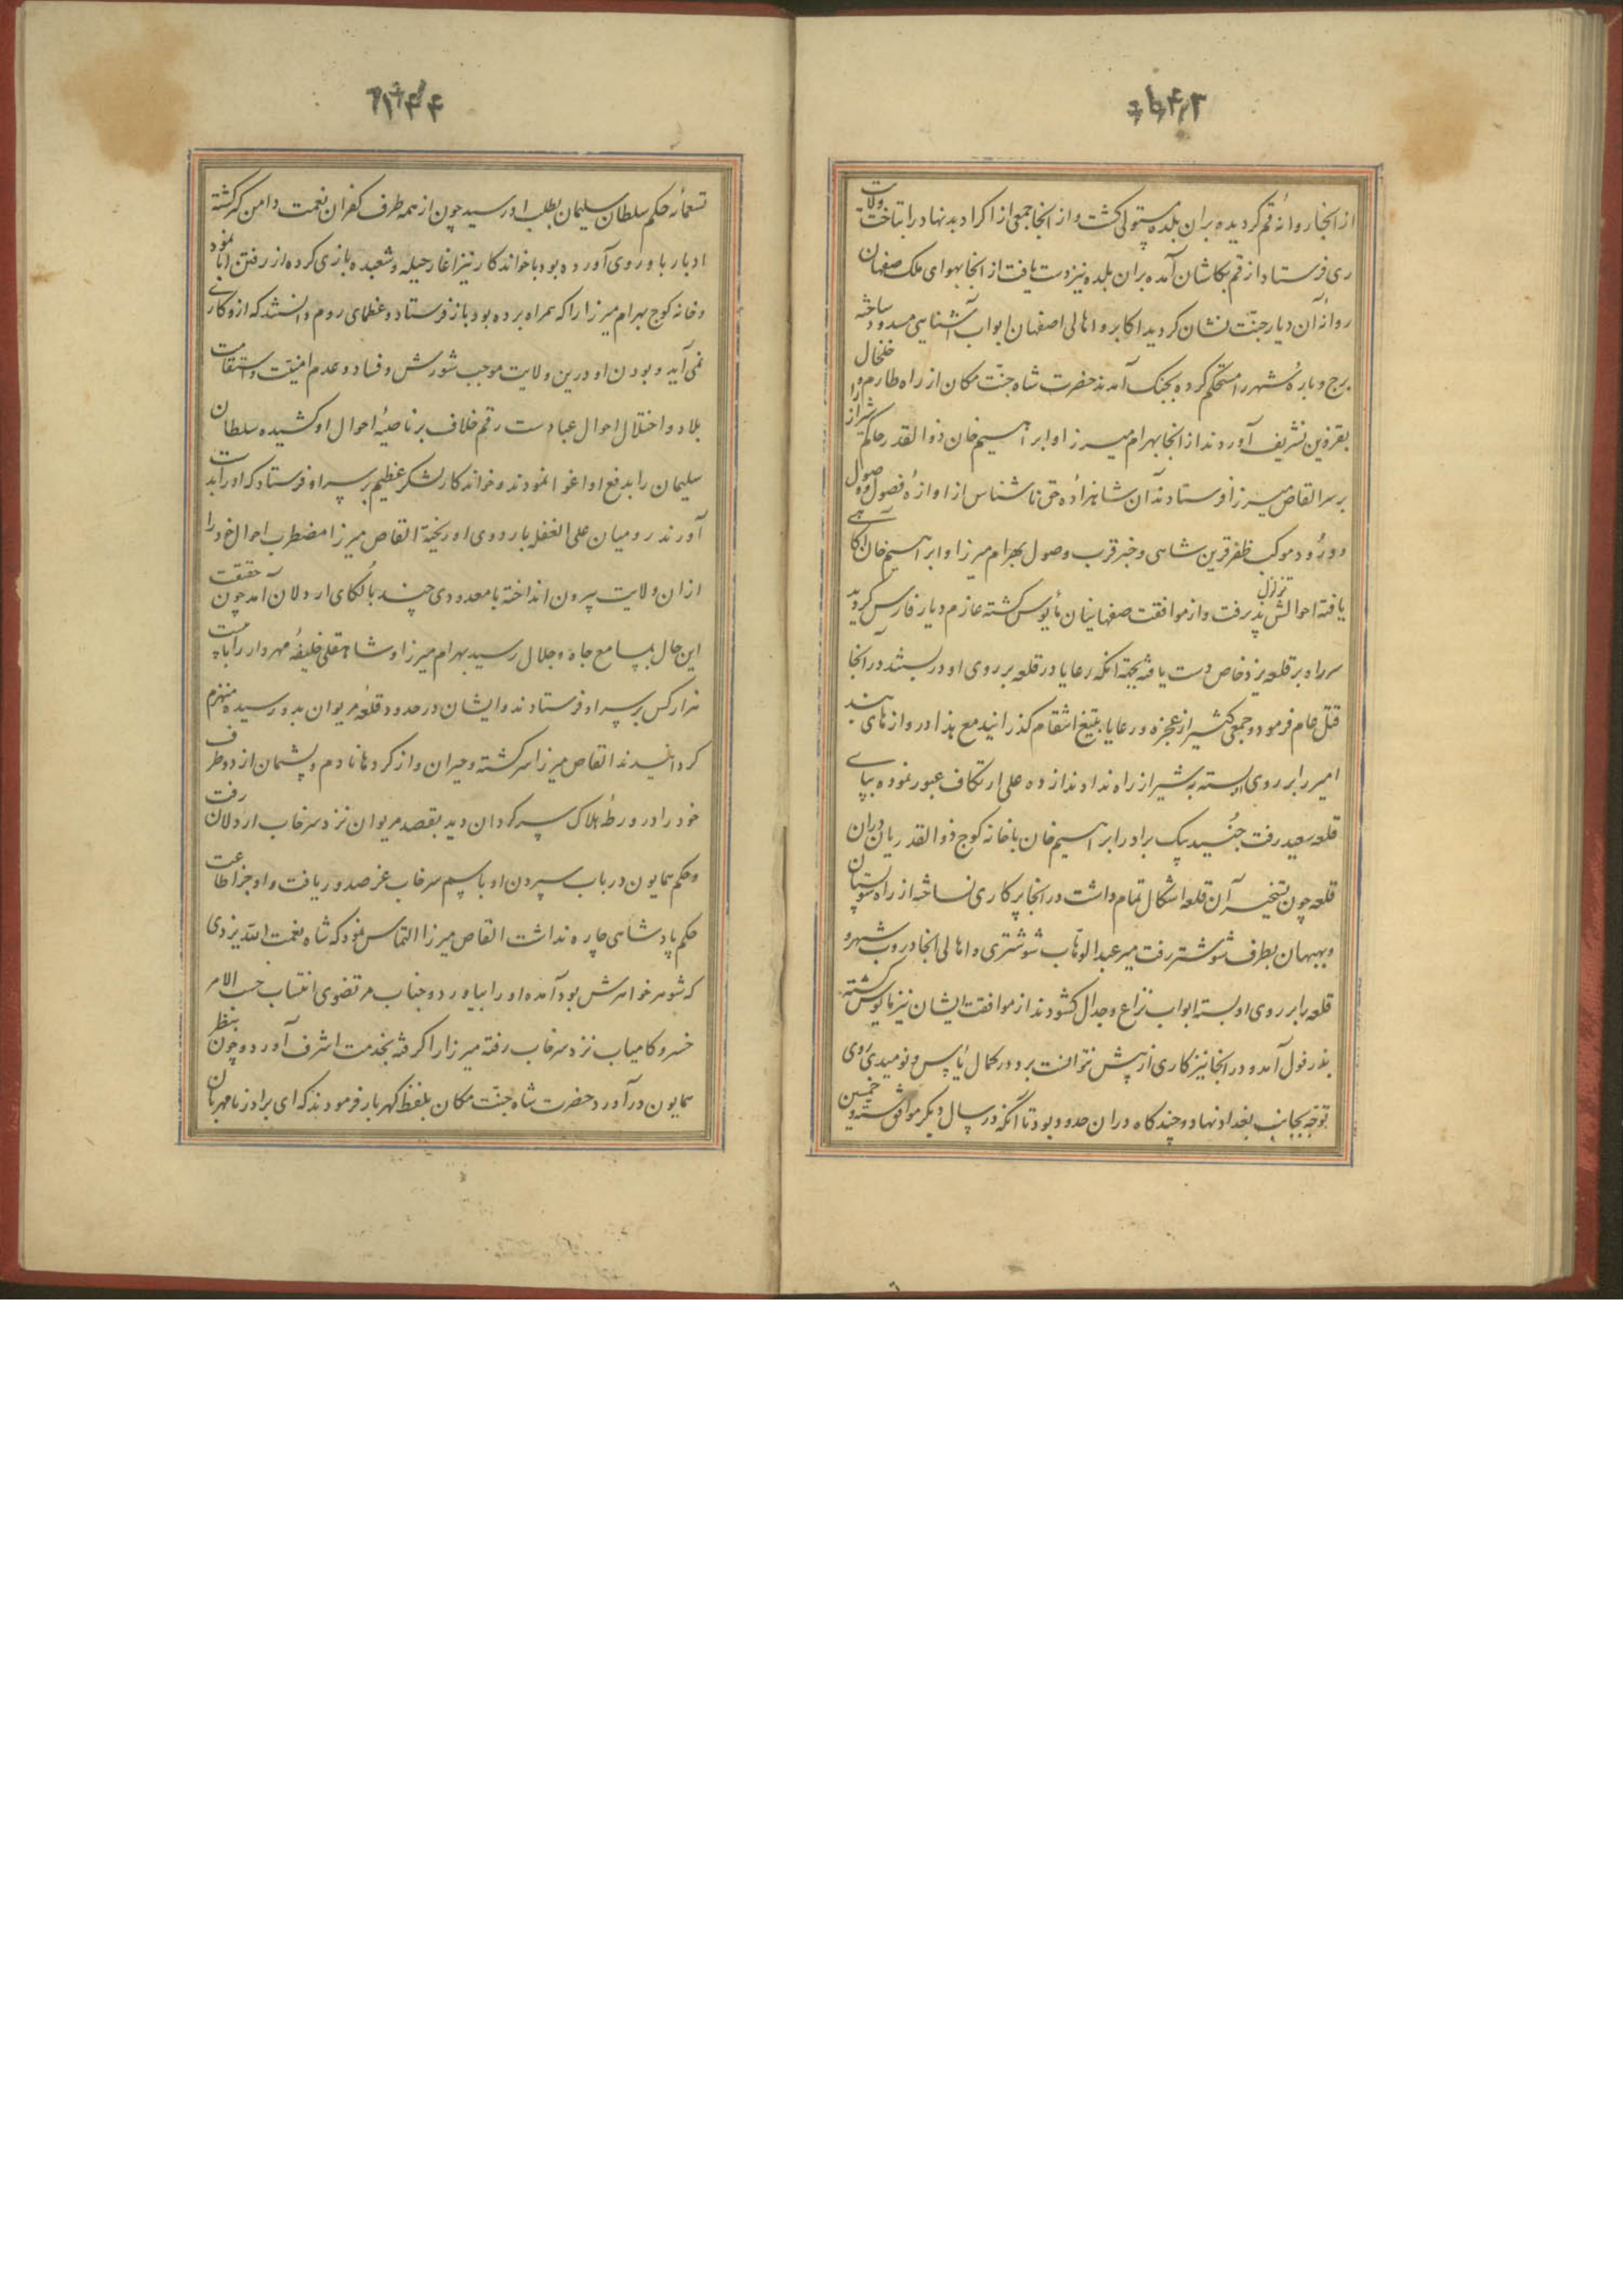 از انجا روانهٔ قم کردیده بران بلده مستولی کشت و از انجا جمعی از اکراد بدنهاد را بتاخت ولایت
ری فرستاد و از قم بکاشان آمده بران بلده نیز دست یافت از انجا بهوای ملک صفهان
روانهٔ آن دیار جنّت نشان کردید اکابر و اهالی اصفهان ابواب آشنایی مسدود ساخته
برج و بارهٔ شهر را مستحکم کرده بجنک آمدند حضرت شاه جنّت مکان از راه طارم و خلخال
بقزوین تشریف آوردند از انجا بهرام میرزا و ابراهیم خان ذوالقدر حاکم شیراز را
بر سر القاص میرزا فرستادند آن شاهزادهٔ حق ناشناس از اوازهٔ فصول وصول
و ورود موکب ظفر قرین شاهی و خبر قرب وصول بهرام میرزا و ابراهیم خان آکاهی
یافته احوالش تزلزل پذیرفت و از موافقت صفهانیان مأیوس کشته عازم دیار فارس کردید
سر راه بر قلعه یزدخاص دست یافته بجهة انکه رعایا در قلعه بر روی او در بستند در آنجا
قتل عام فرمود و جمعی کثیر از عجزه و رعایا بتیغ انتقام کذرانید مع هذا دروازهای بند
امیر را بر روی او بسته بشیراز راه ندادند از ده علی از تکاف عبور نموده بپای
قلعه سعید رفت جنید بیک برادر ابراهیم خان با خانه کوج ذوالقدریان دران
قلعه چون تسخیر آن قلعه اشکال تمام داشت در انجا پر کاری نساخته از راه شولستان
و بهبهان بطرف شوشتر رفت میر عبدالوهّاب شوشتری و اهالی انجا دروب شهر و
قلعه را بر روی او بسته ابواب نزاع و جدال کشودند از موافقت ایشان نیز مأیوس کشته
بدزفول آمد و در انجا نیز کاری از پیش نتوانست برد و در کمال یأس و نومیدی روی
توجّه بجانب بغداد نهاد و چند کاه دران حدود بود تا آنکه در سال دیکر موافق ستّه و خمسین
تسعمائه حکم سلطان سلیمان بطلب او رسید چون از همه طرف کفران نعمت دامن کیر کشته
ادبار باو روی آورده بود باخواندکار نیز اغاز حیله و شعبده بازی کرده از رفتن ابا نمود
و خانه کوج بهرام میرزا را که همراه برده بود باز فرستاد و عظمای روم دانستند که ازو کاری
نمی آید و بودن او درین ولایت موجب شورش و فساد و عدم امنیّت و استقامت
بلاد و اختلال احوال عباد است رقم خلاف بر ناصیهٔ احوال او کشیده سلطان
سلیمان را بدفع او اغوا نمودند و خواندکار لشکر عظیم بر سر او فرستاد که او را بدست
آورند رومیان علی الغفله باردوی او ریخته القاص میرزا مضطرب احوال خود را
ازان ولایت بیرون انداخته با معدودی چند بالکای اردلان آمد چون حقیقت
این حال بمسامع جاه و جلال رسید بهرام میرزا و شاهقلی خلیفهٔ مهردار را با بیست
هزار کس بر سر او فرستادند و ایشان در حدود قلعهٔ مریوان بدو رسیده منهزم
کردانیدند القاص میرزا سرکشته و حیران و از کردها نادم و پشیمان از دو طرف
خود را در ورطهٔ هلاک سرکردان دید بقصد مریوان نزد سرخاب اردلان رفت
و حکم همایون در باب سپردن او باسم سرخاب عز صدور یافت و او جز اطاعت
حکم پادشاهی چاره نداشت القاص میرزا التماس نمود که شاه نعمت الله یزدی
که شوهر خواهرش بود آمده او را بیاورد و جناب مرتضوی انتساب حسب الامر
خسرو کامیاب نزد سرخاب رفته میرزا را کرفته بخدمت اشرف آورد و چون بنظر
همایون درآورد حضرت شاه جنّت مکان بلفظ کهربار فرمودند که ای برادر نامهربان